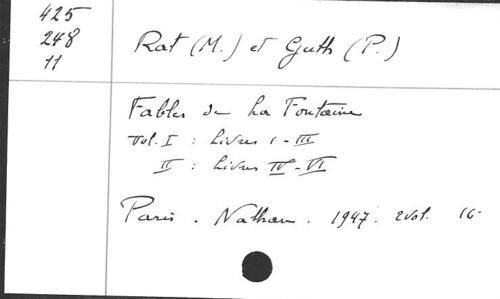 425
248
11
Rat (M.) et Guth (P.)
Fables de La Fontaine
Vol. I : Livres I - III
II : Livres IV - VI
Paris. Nathan. 1947. 2 vol. 16°